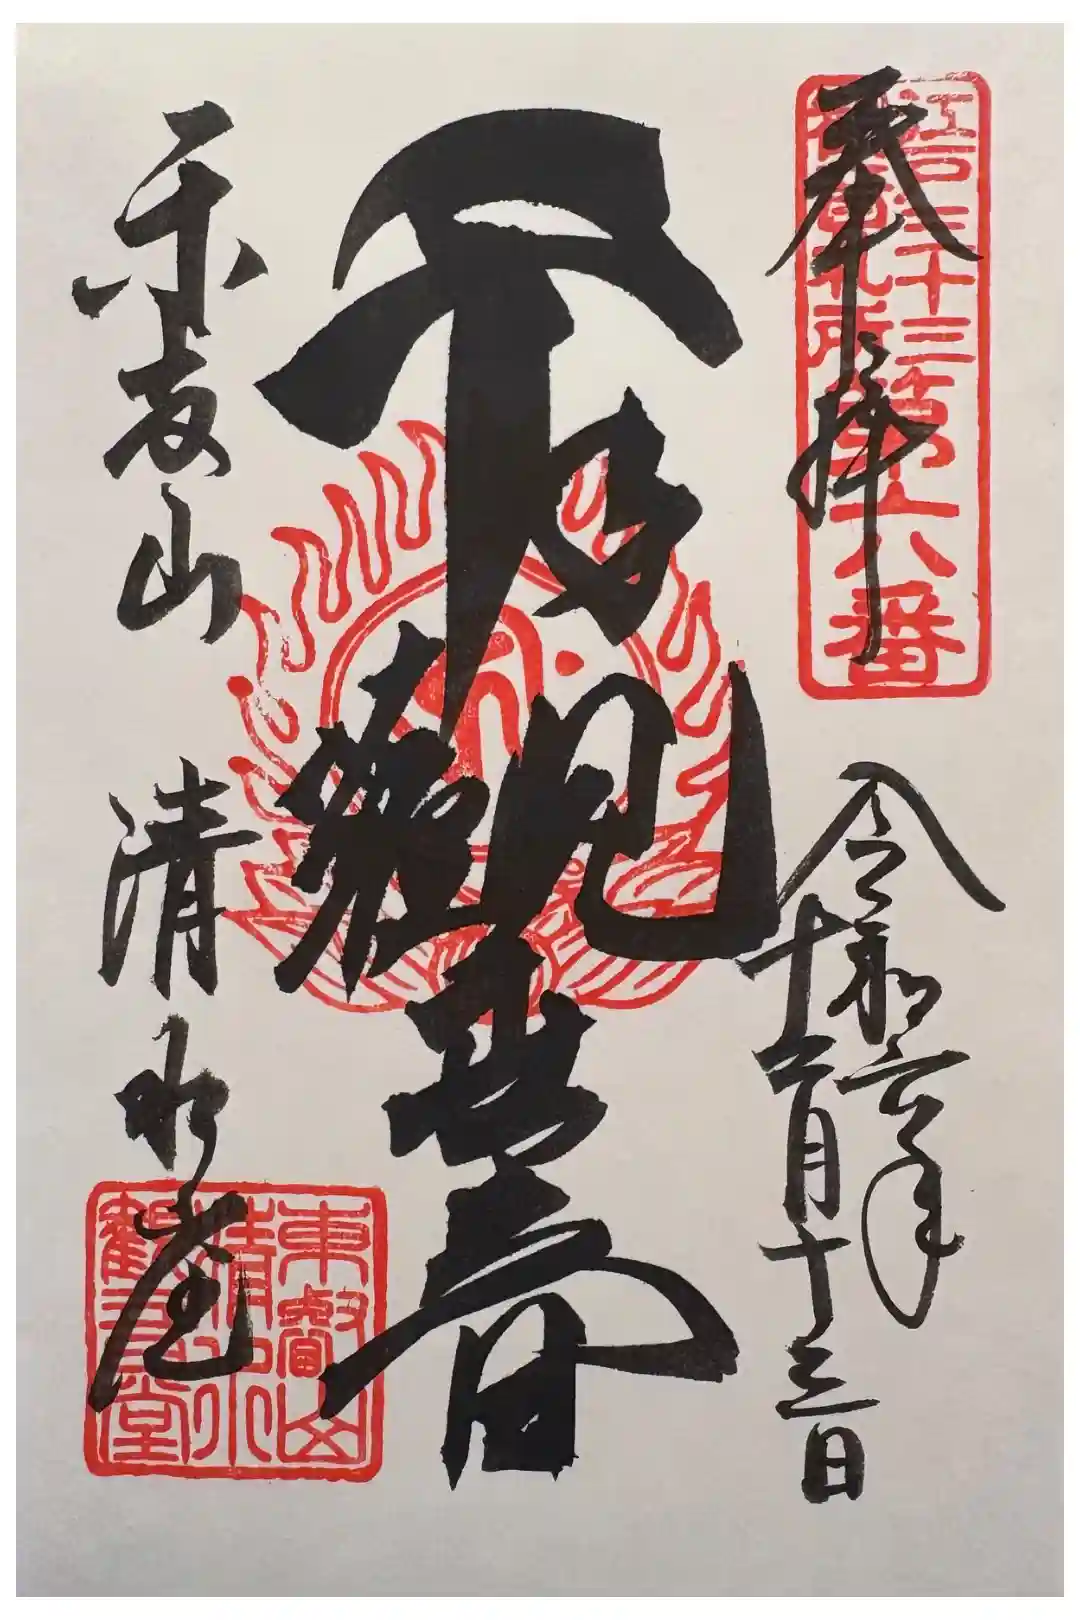 奉拝
江戸三十三
観音札所
第六番
令和六年
十二月十三日
千手觀世音
東叡山 清水堂
東叡山
清水
觀音堂